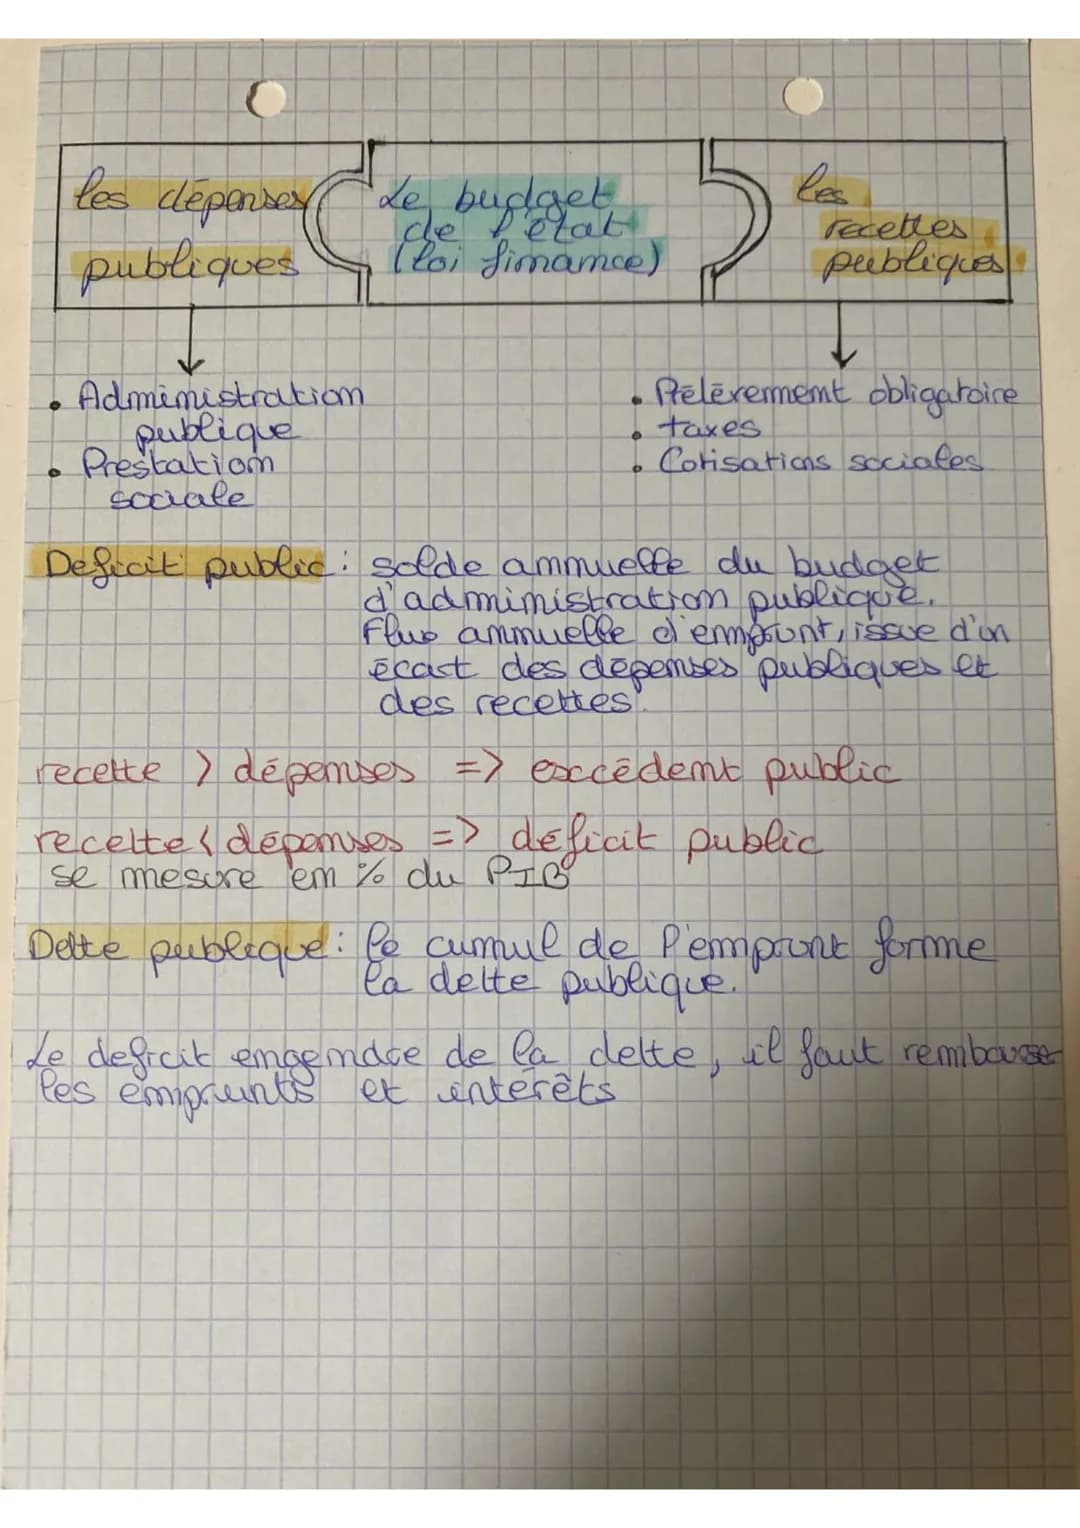 les dépenses
publiques
Le budget
de l'état
(loi finance)
les
recettes
publiques
• Administration
publique
• Prestation
sociale
• Prélèvement obligatoire
• taxes
• Cotisations sociales
Deficit public : solde annuelle du budget
d'administration publique.
Flux annuelle d'emprunt, issue d'un
écart des dépenses publiques et
des recettes.
recette > dépenses => excédent public
recette < dépenses => déficit public
se mesure en % du PIB
Dette publique : le cumul de l'emprunt forme
la dette publique.
Le deficit engendre de la dette, il faut rembourser
les emprunts et intérêts